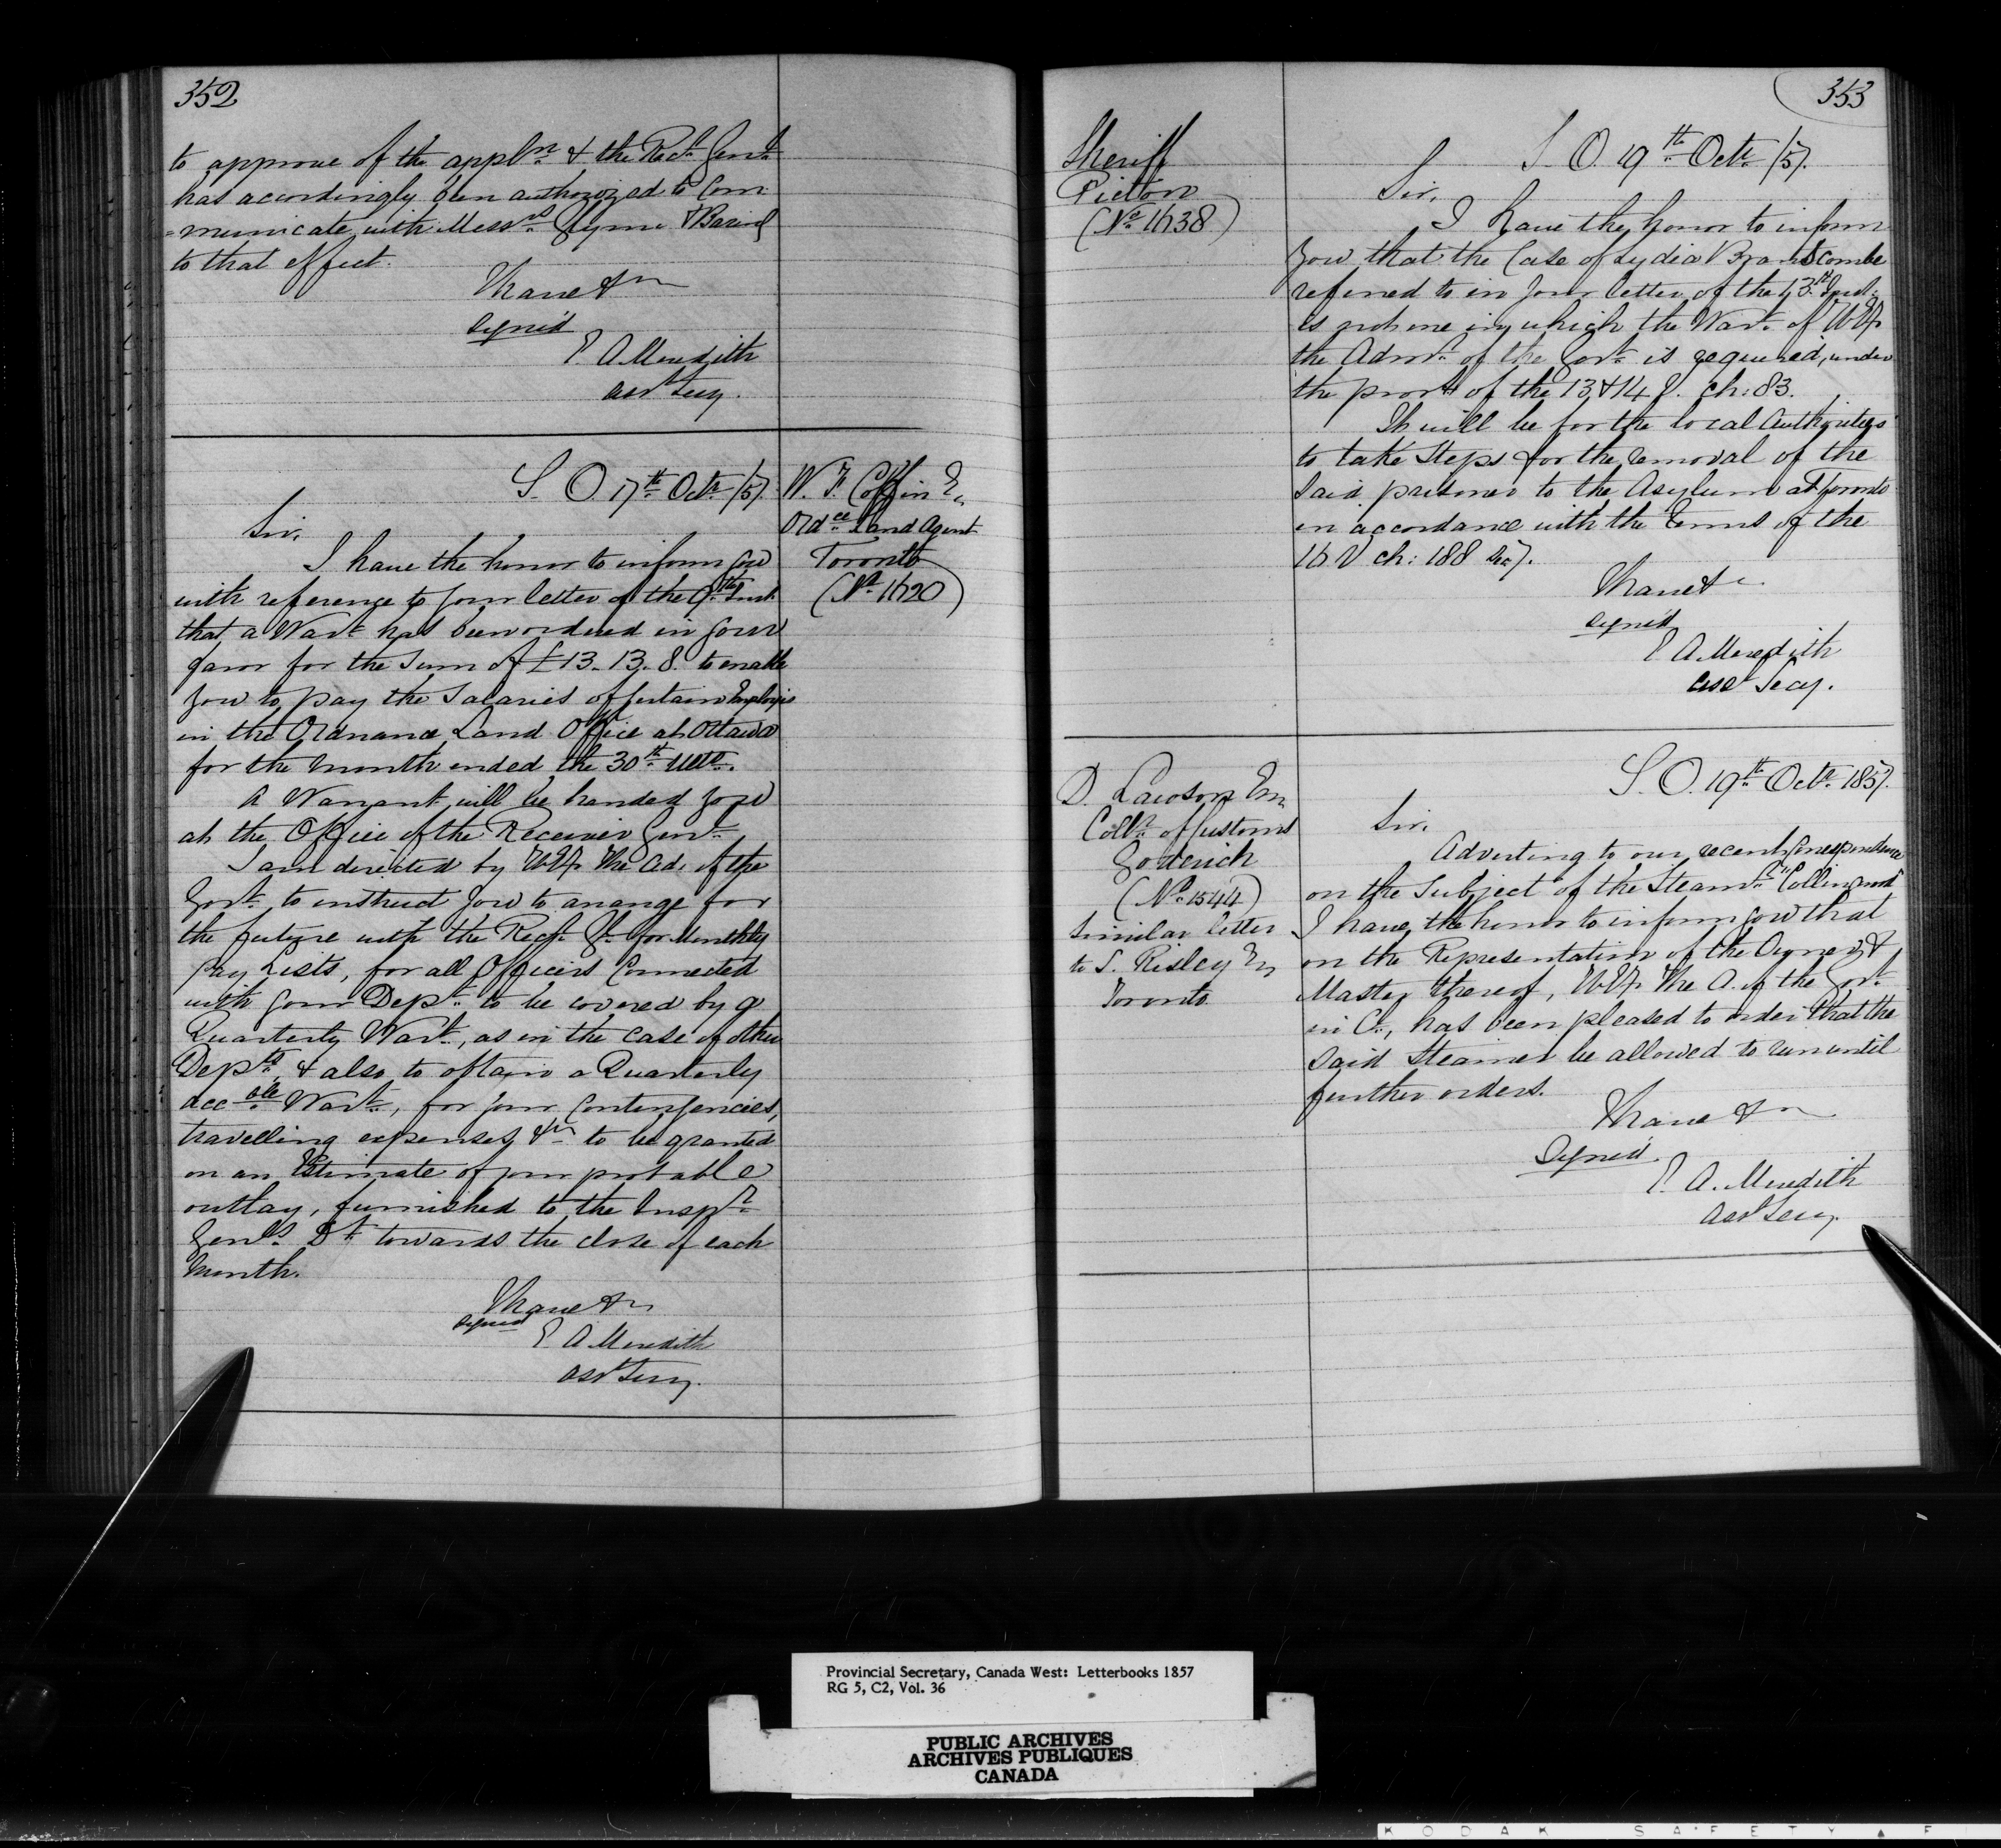 352
to approve of the appln. & the Recr. Genl.
has accordingly been authorized to Com
=municate with Messrs. Glynn & Baring
to that effect.
I have &c
signed
E A Meredith
Asst Secy.
S. O. 17th Octr. /57.
W. F. Coffin Es
Ordce Land Agent
Toronto
(No. 1620)
Sir,
I have the honor to inform you
with reference to your letter of the 9th Inst.
that a Wart. has been ordered in your
favor for the sum of £13.13.8. to enable
you to pay the Salaries of certain Employés
in the Ordnance Land Office at Ottawa
for the month ended the 30th Ulto.
A Warrant will be handed you
at the Office of the Receiver Genl.
I am directed by H. E. The Ad. of the
Govt. to instruct you to arrange for
the future with the Recr. Gl. for Monthly
Pay Lists, for all Officers Connected
with your Dept. to be covered by a
Quarterly Wart., as in the case of other
Depts. & also to obtain a Quarterly
accble Wart., for your Contingencies,
travelling expenses &c to be granted
on an Estimate of your probable
outlay, furnished to the Inspr.
Genls. Dt. towards the close of each
Month.
I have &c
signed
E. A Meredith
Asst Secy.
353
Sheriff
Picton
(No. 1638)
S. O. 19th Octr. /57.
Sir,
I have the honor to inform
you that the Case of Lydia Branscombe
referred to in your letter of the 13th Inst.
is not one in which the Wart. of H. E.
the Admr. of the Govt. is required, under
the provs. of the 13 & 14 V. ch: 83.
It will be for the local Authorities
to take Steps for the removal of the
said prisoner to the Asylum at Toronto
in accordance with the terms of the
16 V ch: 188 Sec 7.
I have &c
signed
E A Meredith
Asst Secy.
D. Lawson Esq
Collr. of Customs
Goderich
(No. 1544)
Similar letter
to S. Risley Esq
Toronto
S. O. 19th Octr. 1857.
Sir,
Adverting to our recent Correspondence
on the Subject of the Steamr. "Collingwood"
I have the honor to inform you that
on the Representation of the Owner &
Master thereof, H. E. The A. of the Govt.
in C., has been pleased to order that the
said Steamer be allowed to run until
further orders.
I have &c
Signed.
E. A. Meredith
Asst Secy.
Provincial Secretary, Canada West: Letterbooks 1857
RG 5, C2, Vol. 36
PUBLIC ARCHIVES
ARCHIVES PUBLIQUES
CANADA
KODAK SAFETY F